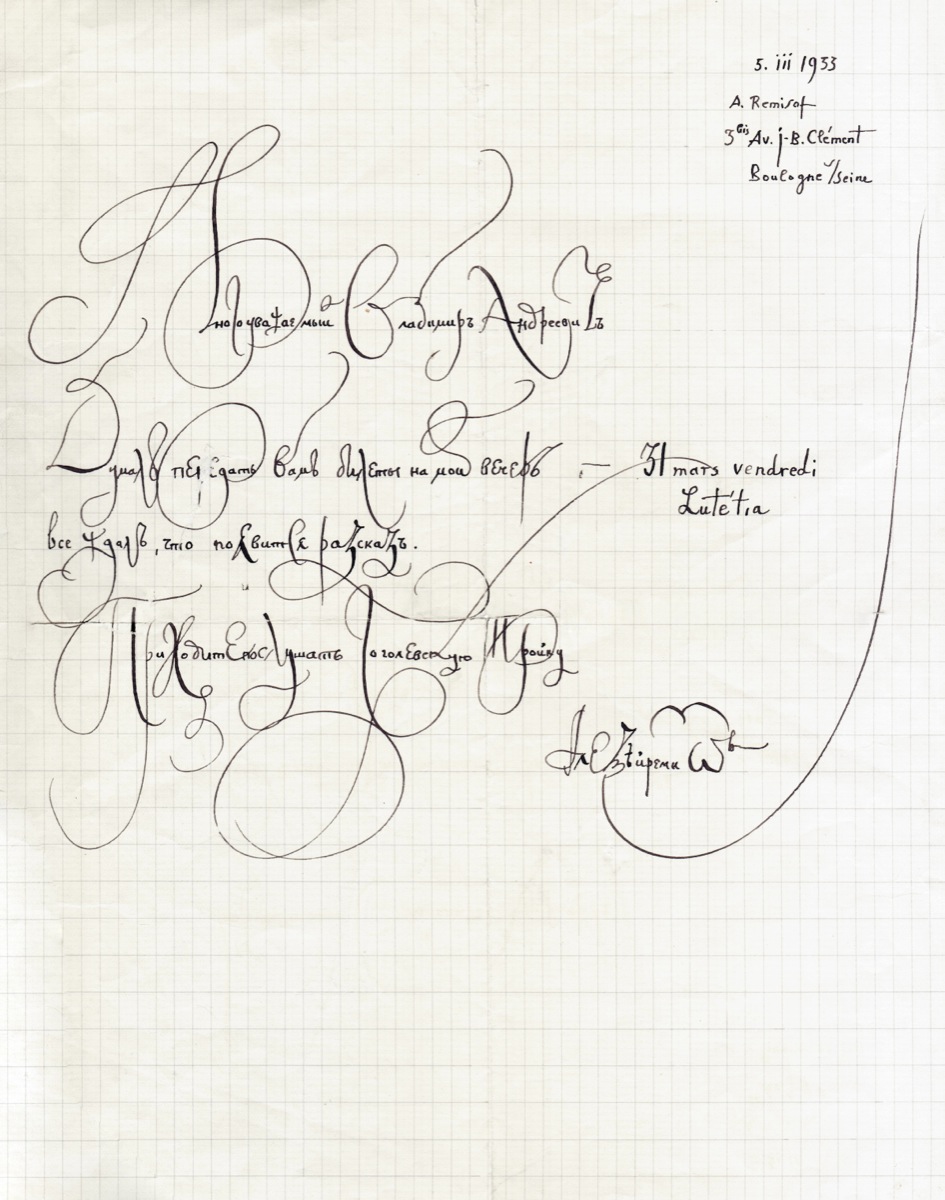 5. iii 1933
A. Remisof
3bis Av. J-B. Clément
Boulogne s/Seine
Многоуважаемый Владимиръ Андреевичъ
Думалъ передать Вамъ билеты на мой вечеръ — 31 mars vendredi
Lutétia
все ждалъ, что появится разсказъ.
Приходите послушать Гоголевскую Тройку
Алексѣй Ремизовъ